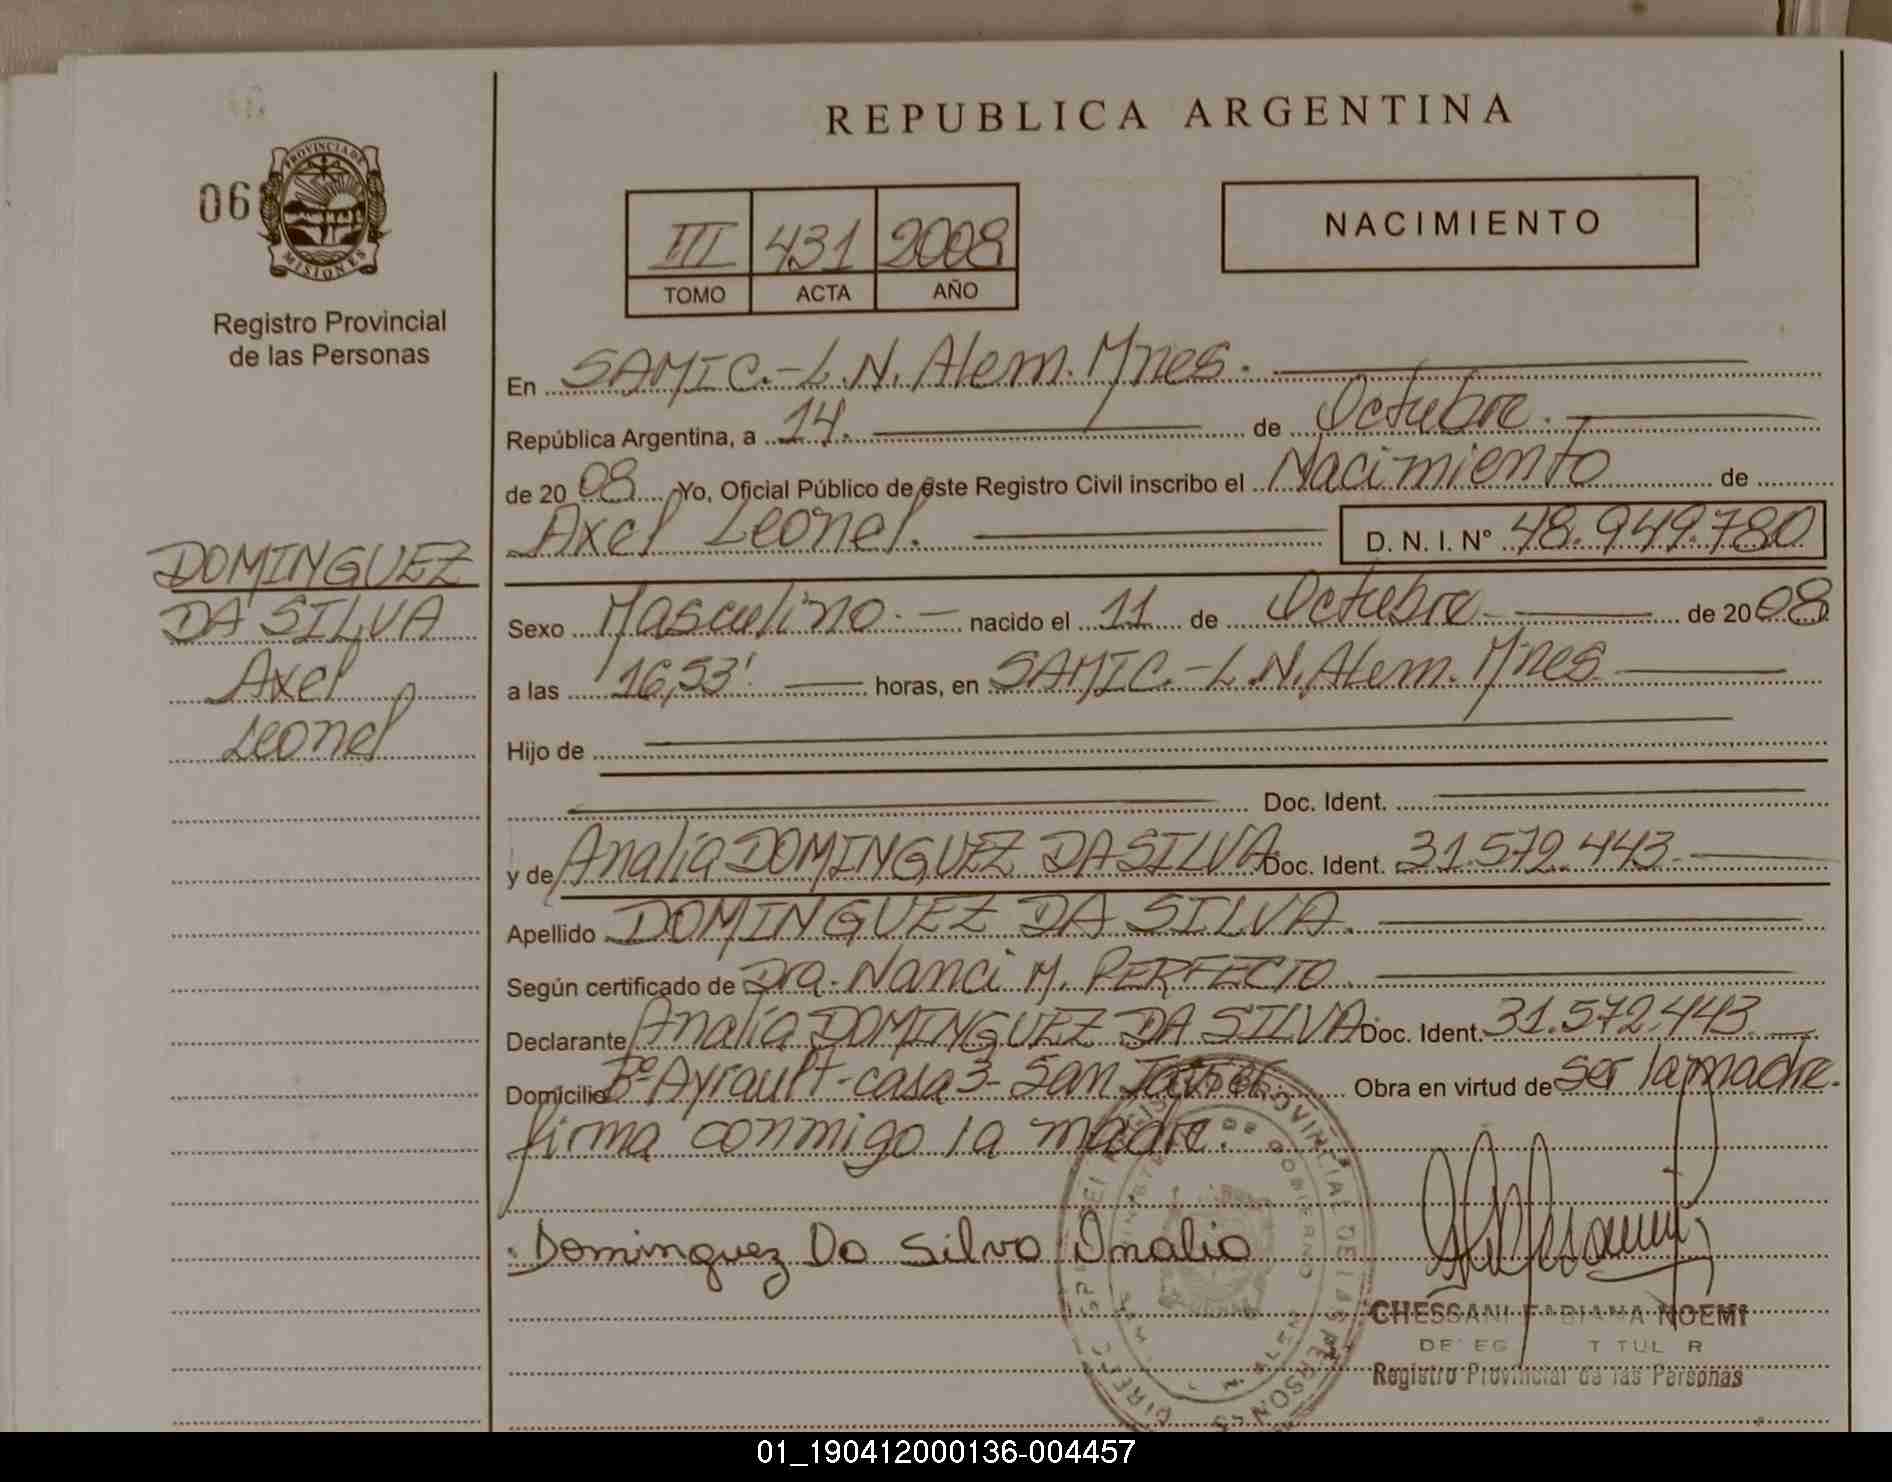 REPUBLICA ARGENTINA
06
PROVINCIA DE
MISIONES
Registro Provincial
de las Personas
III 431 2008
TOMO ACTA AÑO
NACIMIENTO
En SAMIC.-L.N. Alem. Mnes.
República Argentina, a 14. de Octubre.
de 20 08 Yo, Oficial Público de este Registro Civil inscribo el Nacimiento de
Axel Leonel. D. N. I. N° 48.949.780
DOMINGUEZ
DA SILVA
Axel
Leonel
Sexo Masculino.- nacido el 11 de Octubre de 20 08
a las 16,53' horas, en SAMIC.-L.N. Alem. Mnes
Hijo de
Doc. Ident.
y de Analía DOMINGUEZ DA SILVA Doc. Ident. 31.572.443.
Apellido DOMINGUEZ DA SILVA.
Según certificado de Dra. Nanci M. PERFECTO.
Declarante Analía DOMINGUEZ DA SILVA Doc. Ident. 31.572.443
Domicilio B° Ayrault-casa 3- San Javier. Obra en virtud de ser la madre.
firma conmigo la madre.
Dominguez Da Silva Analia
CHESSANI FABIANA NOEMI
Registro Provincial de las Personas
01_190412000136-004457